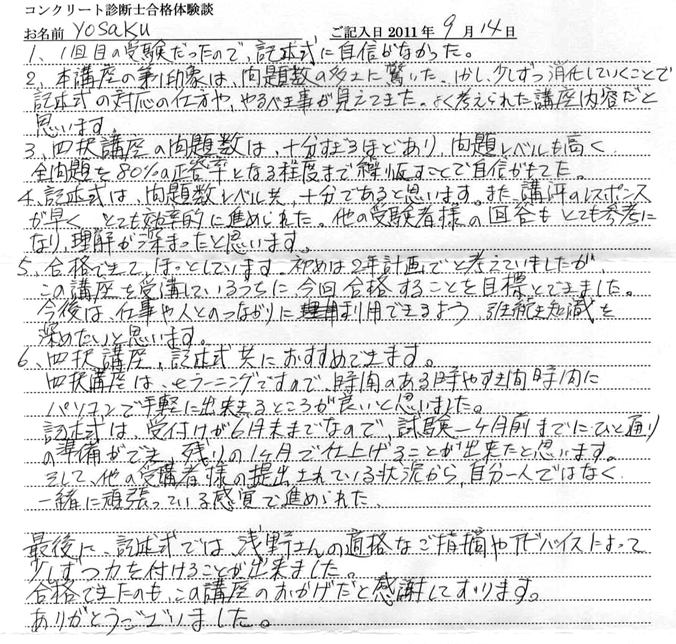 コンクリート診断士合格体験談
お名前 YOSAKU ご記入日2011年 9月 14日
1、1回目の受験だったので、記述式に自信がなかった。
2、本講座の第1印象は、問題数の多さに驚いた。しかし、少しずつ消化していくことで
記述式の対応の仕方や、やるべき事が見えてきた。よく考えられた講座内容だと
思います。
3、四択講座の問題数は、十分すぎるほどあり、問題レベルも高く
全問題を80%の正答率となる程度まで繰り返すことで自信がもてた。
4、記述式は、問題数、レベル共、十分であると思います。また、講師のレスポンス
が早く とても効率的に進められた。他の受験者様の回答も とても参考に
なり、理解が深まったと思います。
5、合格できて、ほっとしています。初めは2年計画でと考えていましたが、
この講座を受講しているうちに今回合格することを目標とできました。
今後は、仕事や人とのつながりに利用できるよう、引き続き知識を
深めたいと思います。
6、四択講座、記述式共におすすめできます。
四択講座は、eラーニングですので、時間のある時やすき間時間に
パソコンで手軽に出来るところが良いと思いました。
記述式は、受付けが6月末までなので、試験一ヶ月前までにひと通り
の準備ができ、残りの1ヶ月で仕上げることが出来たと思います。
そして、他の受講者様の提出されている状況から、自分一人ではなく
一緒に頑張っている感覚で進められた。
最後に、記述式では、浅野さんの適格なご指摘やアドバイスによって
少しずつ力を付けることが出来ました。
合格できたのも、この講座のおかげだと感謝しております。
ありがとうございました。